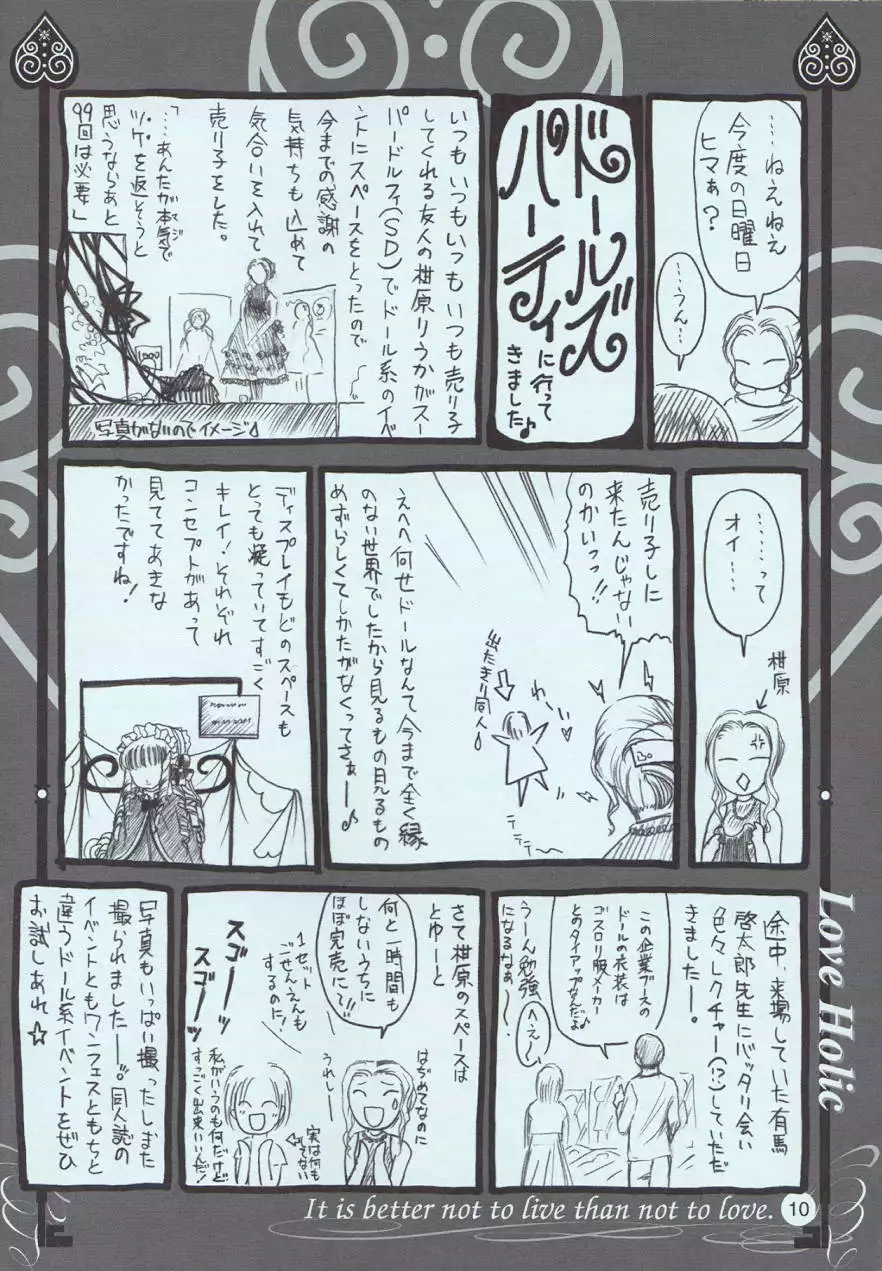 ……ねえねえ
今度の日曜日
ヒマぁ?
……うん…
ドールズ
パーティに行って
きました♪
いつもいつもいつもいつも売り子
してくれる友人の柑原りうかがスー
パードルフィ(SD)でドール系のイベ
ントにスペースをとったので
今までの感謝の
気持ちも込めて
気合いを入れて
売り子をした。
「…あんたが本気で
マジ
ツケを返そうと
思うならあと
99回は必要」
写真がないのでイメージ♪
………って
オイ……
柑原
売り子しに
来たんじゃない
のかいっっ!!
出たきり同人♪
わーい
テテテ…
えへへ何せドールなんて今まで全く縁
のない世界でしたから見るもの見るもの
めずらしくてしかたがなくってさぁー♪
ディスプレイもどのスペースも
とっても凝っていてすごく
キレイ!それぞれ
コンセプトがあって
見ててあきな
かったですね!
途中、来場していた有馬
啓太郎先生にバッタリ会い
色々レクチャー(!?)していただ
きましたー。
この企業ブースの
ドールの衣装は
ゴスロリ服メーカー
とのタイアップなんだよ♪
うーん勉強
になるなぁ~
へえ~
さて柑原のスペースは
とゆーと
何と一時間も
しないうちに
ほぼ完売にて!!
はぢめてなのに
うれしー
1セット
ごせんえんも
するのに!
スゴーッ
スゴーッ
実は何も
してない
私がいうのも何だけど
すっごく出来いいんだ!
写真もいっぱい撮ったしまた
撮られましたー。同人誌の
イベントともワンフェスともちと
違うドール系イベントをぜひ
お試しあれ☆
Love Holic
It is better not to live than not to love.
10